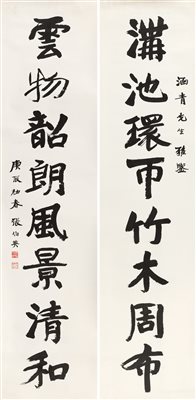 涵青先生雅鑒
溝池環帀竹木周布
雲物韶朗風景清和
庚辰初春張伯英